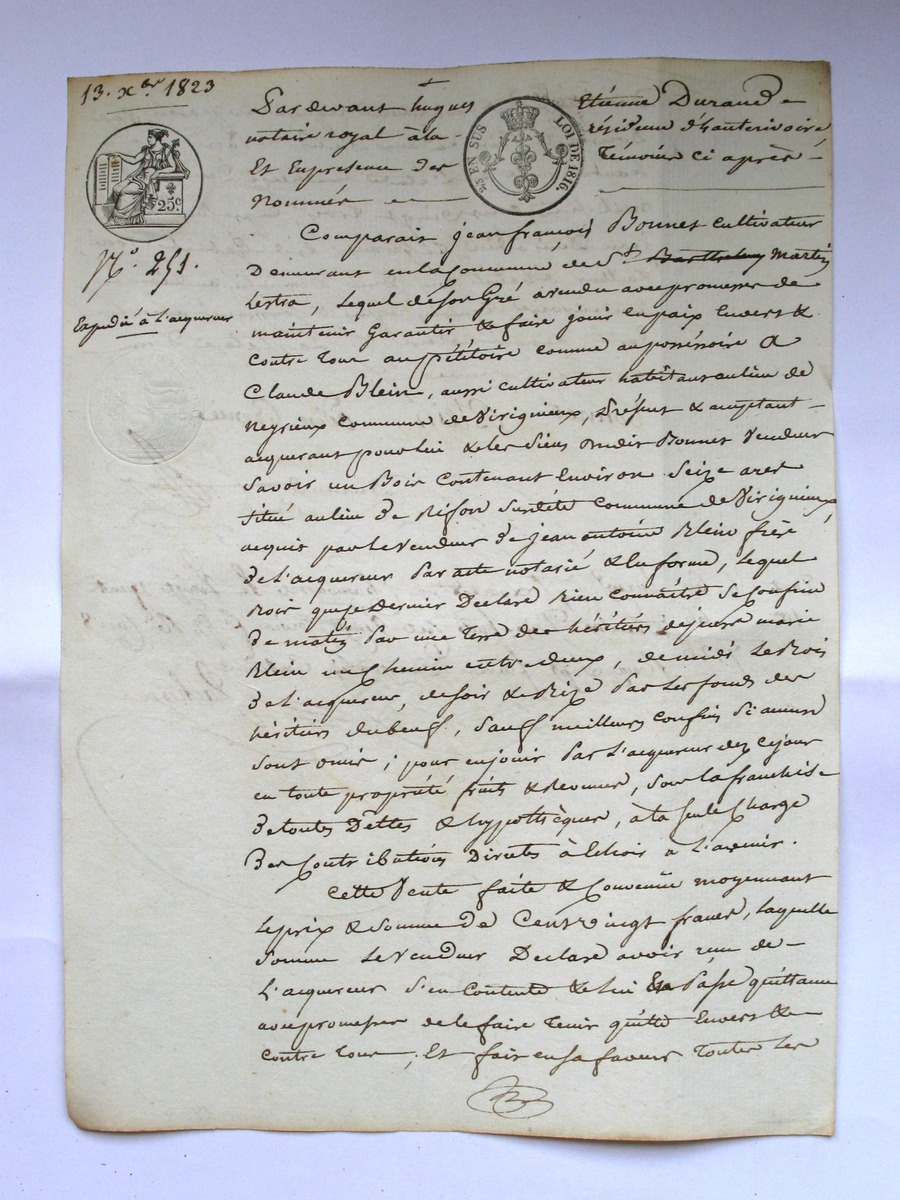 13. Xbr 1823
Pardevant hugues Etienne Durand
notaire royal à la résidence d'hauterivoire
Et En presence des témoins ci après
Nommés
25 EN SUS LOI DE 1816.
25c
N° 251.
Expédié à l'acquereur
Comparait jean françois Bonnet cultivateur
Demeurant en la Commune de St. Barthelemy Martin
Lestra, lequel de son Gré a vendu avec promesses de
maintenir Garantir & faire jouir en paix Envers &
contre tous au pétitoire comme au possessoire a
Claude Blein, aussi cultivateur habitant au lieu de
Neyrieux commune de Virigneux, Présent & acceptant
acquerant pour lui & les siens Dudit Bonnet Vendeur
Savoir un Bois Contenant Environ Seize ares
situé au lieu De Rifon susdite Commune de Virigneux,
acquis par le Vendeur De jean antoine Blein frère
De l'acquereur Par acte notarié & En forme, lequel
Bois que ce Dernier Declare Bien connaître Se Confine
De matin Par une Terre des héritiers de jean marie
Blein un Chemin entre deux, de midi Le Bois
De l'acquereur, de soir & Bize Par Les fonds des
héritiers dubeuf, Sauf meilleurs confins Si aucuns
sont omis; pour en jouir Par L'acquereur dez ce jour
en toute propriété fruits & Revenus, sous la franchise
De toutes Dettes & hypothèques, à la seule Charge
Des Contributions Directes à Echoir à L'avenir.
Cette Vente faite & Convenüe moyennant
Le prix & Somme De Cent vingt francs, laquelle
somme Le Vendeur Declare avoir reçu de
L'acquereur S'en Contente & lui En Passe quittance
avec promesses de le faire Tenir quitte Envers &
contre Tous; Et fait en sa faveur Toutes Les